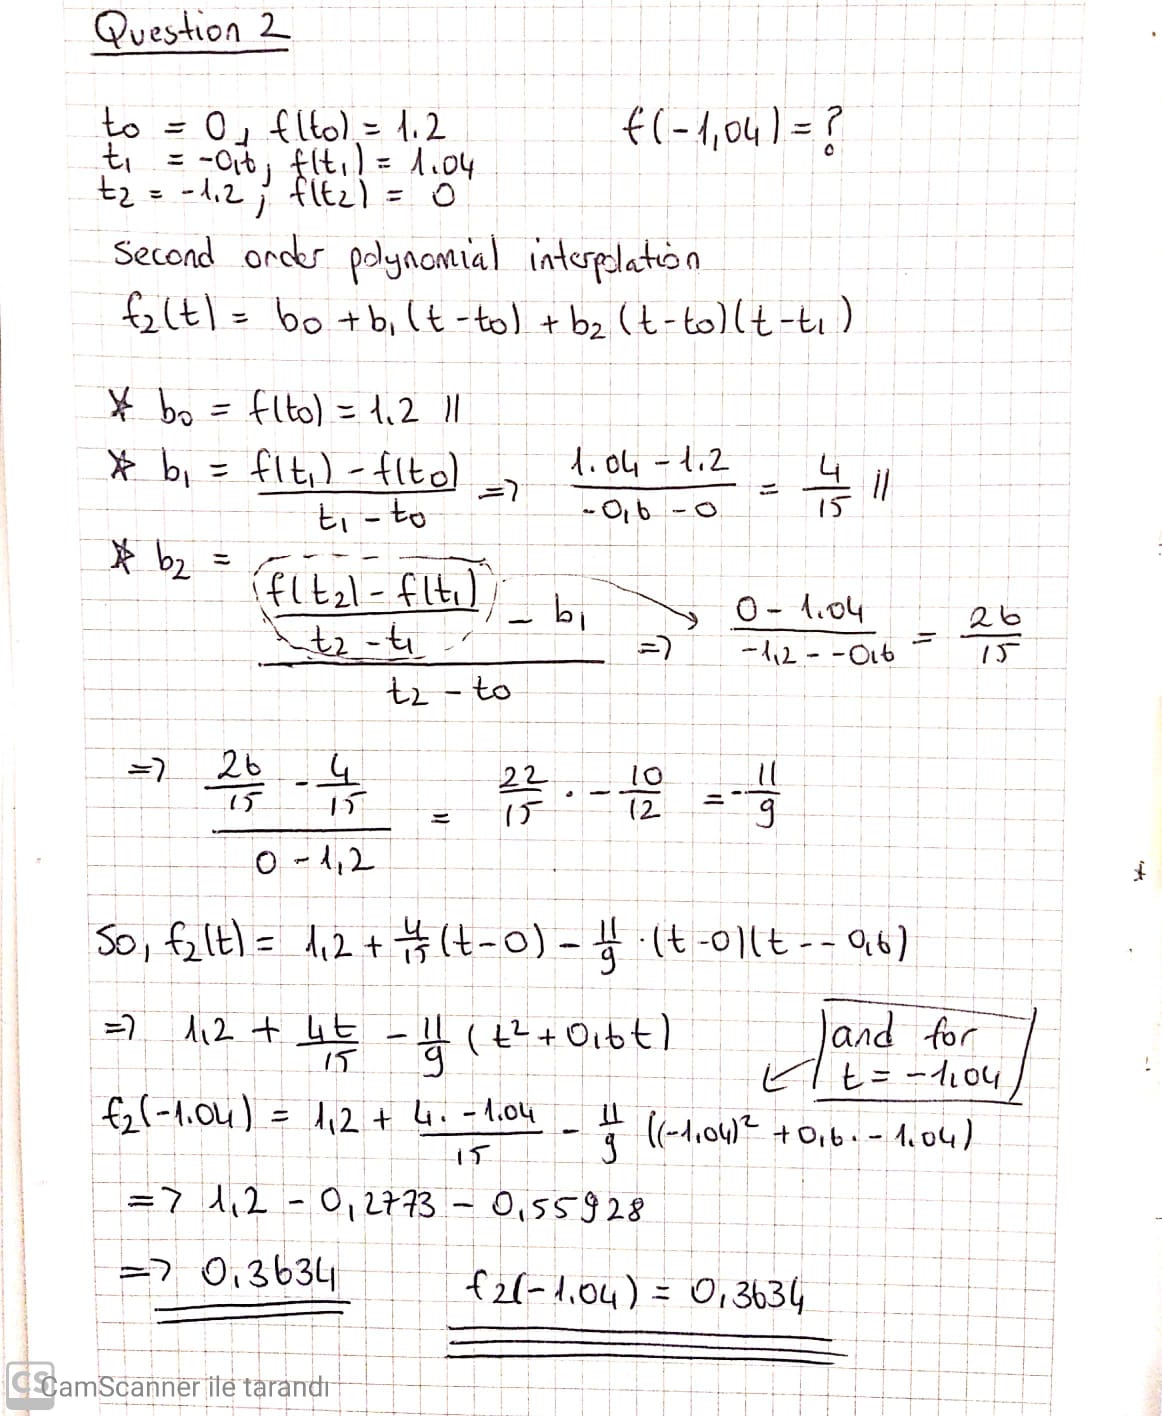 Question 2
t0 = 0, f(t0) = 1.2 f(-1,04) = ?
t1 = -0,6, f(t1) = 1.04
t2 = -1.2; f(t2) = 0
Second order polynomial interpolation
f2(t) = b0 + b1 (t - t0) + b2 (t - t0)(t - t1)
* b0 = f(t0) = 1,2 //
* b1 = f(t1) - f(t0) / t1 - t0 => 1.04 - 1.2 / -0,6 - 0 = 4/15 //
* b2 = ((f(t2) - f(t1)) / (t2 - t1) - b1) / (t2 - t0) => 0 - 1.04 / -1,2 - -0,6 = 26/15
=> (26/15 - 4/15) / (0 - 1,2) = 22/15 . - 10/12 = - 11/9
So, f2(t) = 1,2 + 4/15 (t - 0) - 11/9 . (t - 0)(t - - 0,6)
=> 1,2 + 4t/15 - 11/9 (t² + 0,6t) and for
t = -1,04
f2(-1.04) = 1,2 + 4. -1.04 / 15 - 11/9 ((-1,04)² + 0,6. - 1.04)
=> 1,2 - 0,2773 - 0,55928
=> 0,3634 f2(-1.04) = 0,3634
CS CamScanner ile tarandı